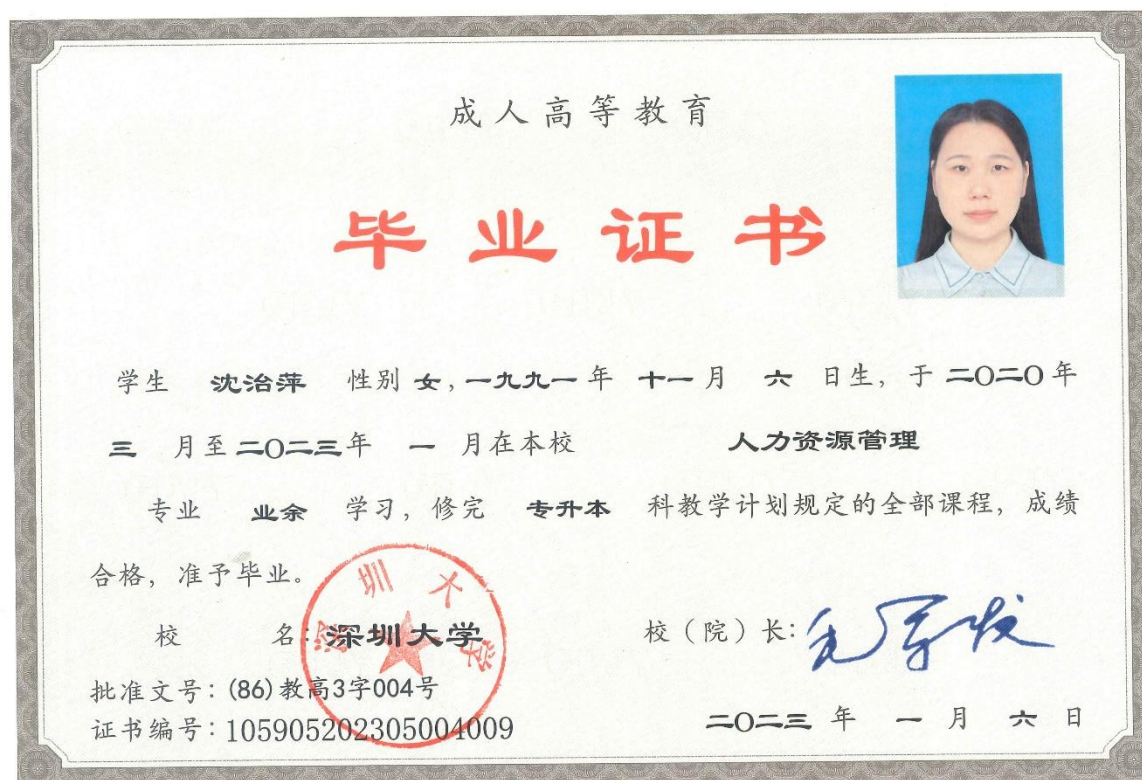 成人高等教育
毕业证书
学生 沈治萍 性别 女，一九九一年 十一月 六 日生，于 二〇二〇年
三 月至 二〇二三年 一 月在本校 人力资源管理
专业 业余 学习，修完 专升本 科教学计划规定的全部课程，成绩
合格，准予毕业。
校 名：深圳大学 校（院）长：毛军发
深圳大学
批准文号：(86)教高3字004号
证书编号：105905202305004009
二〇二三 年 一 月 六 日